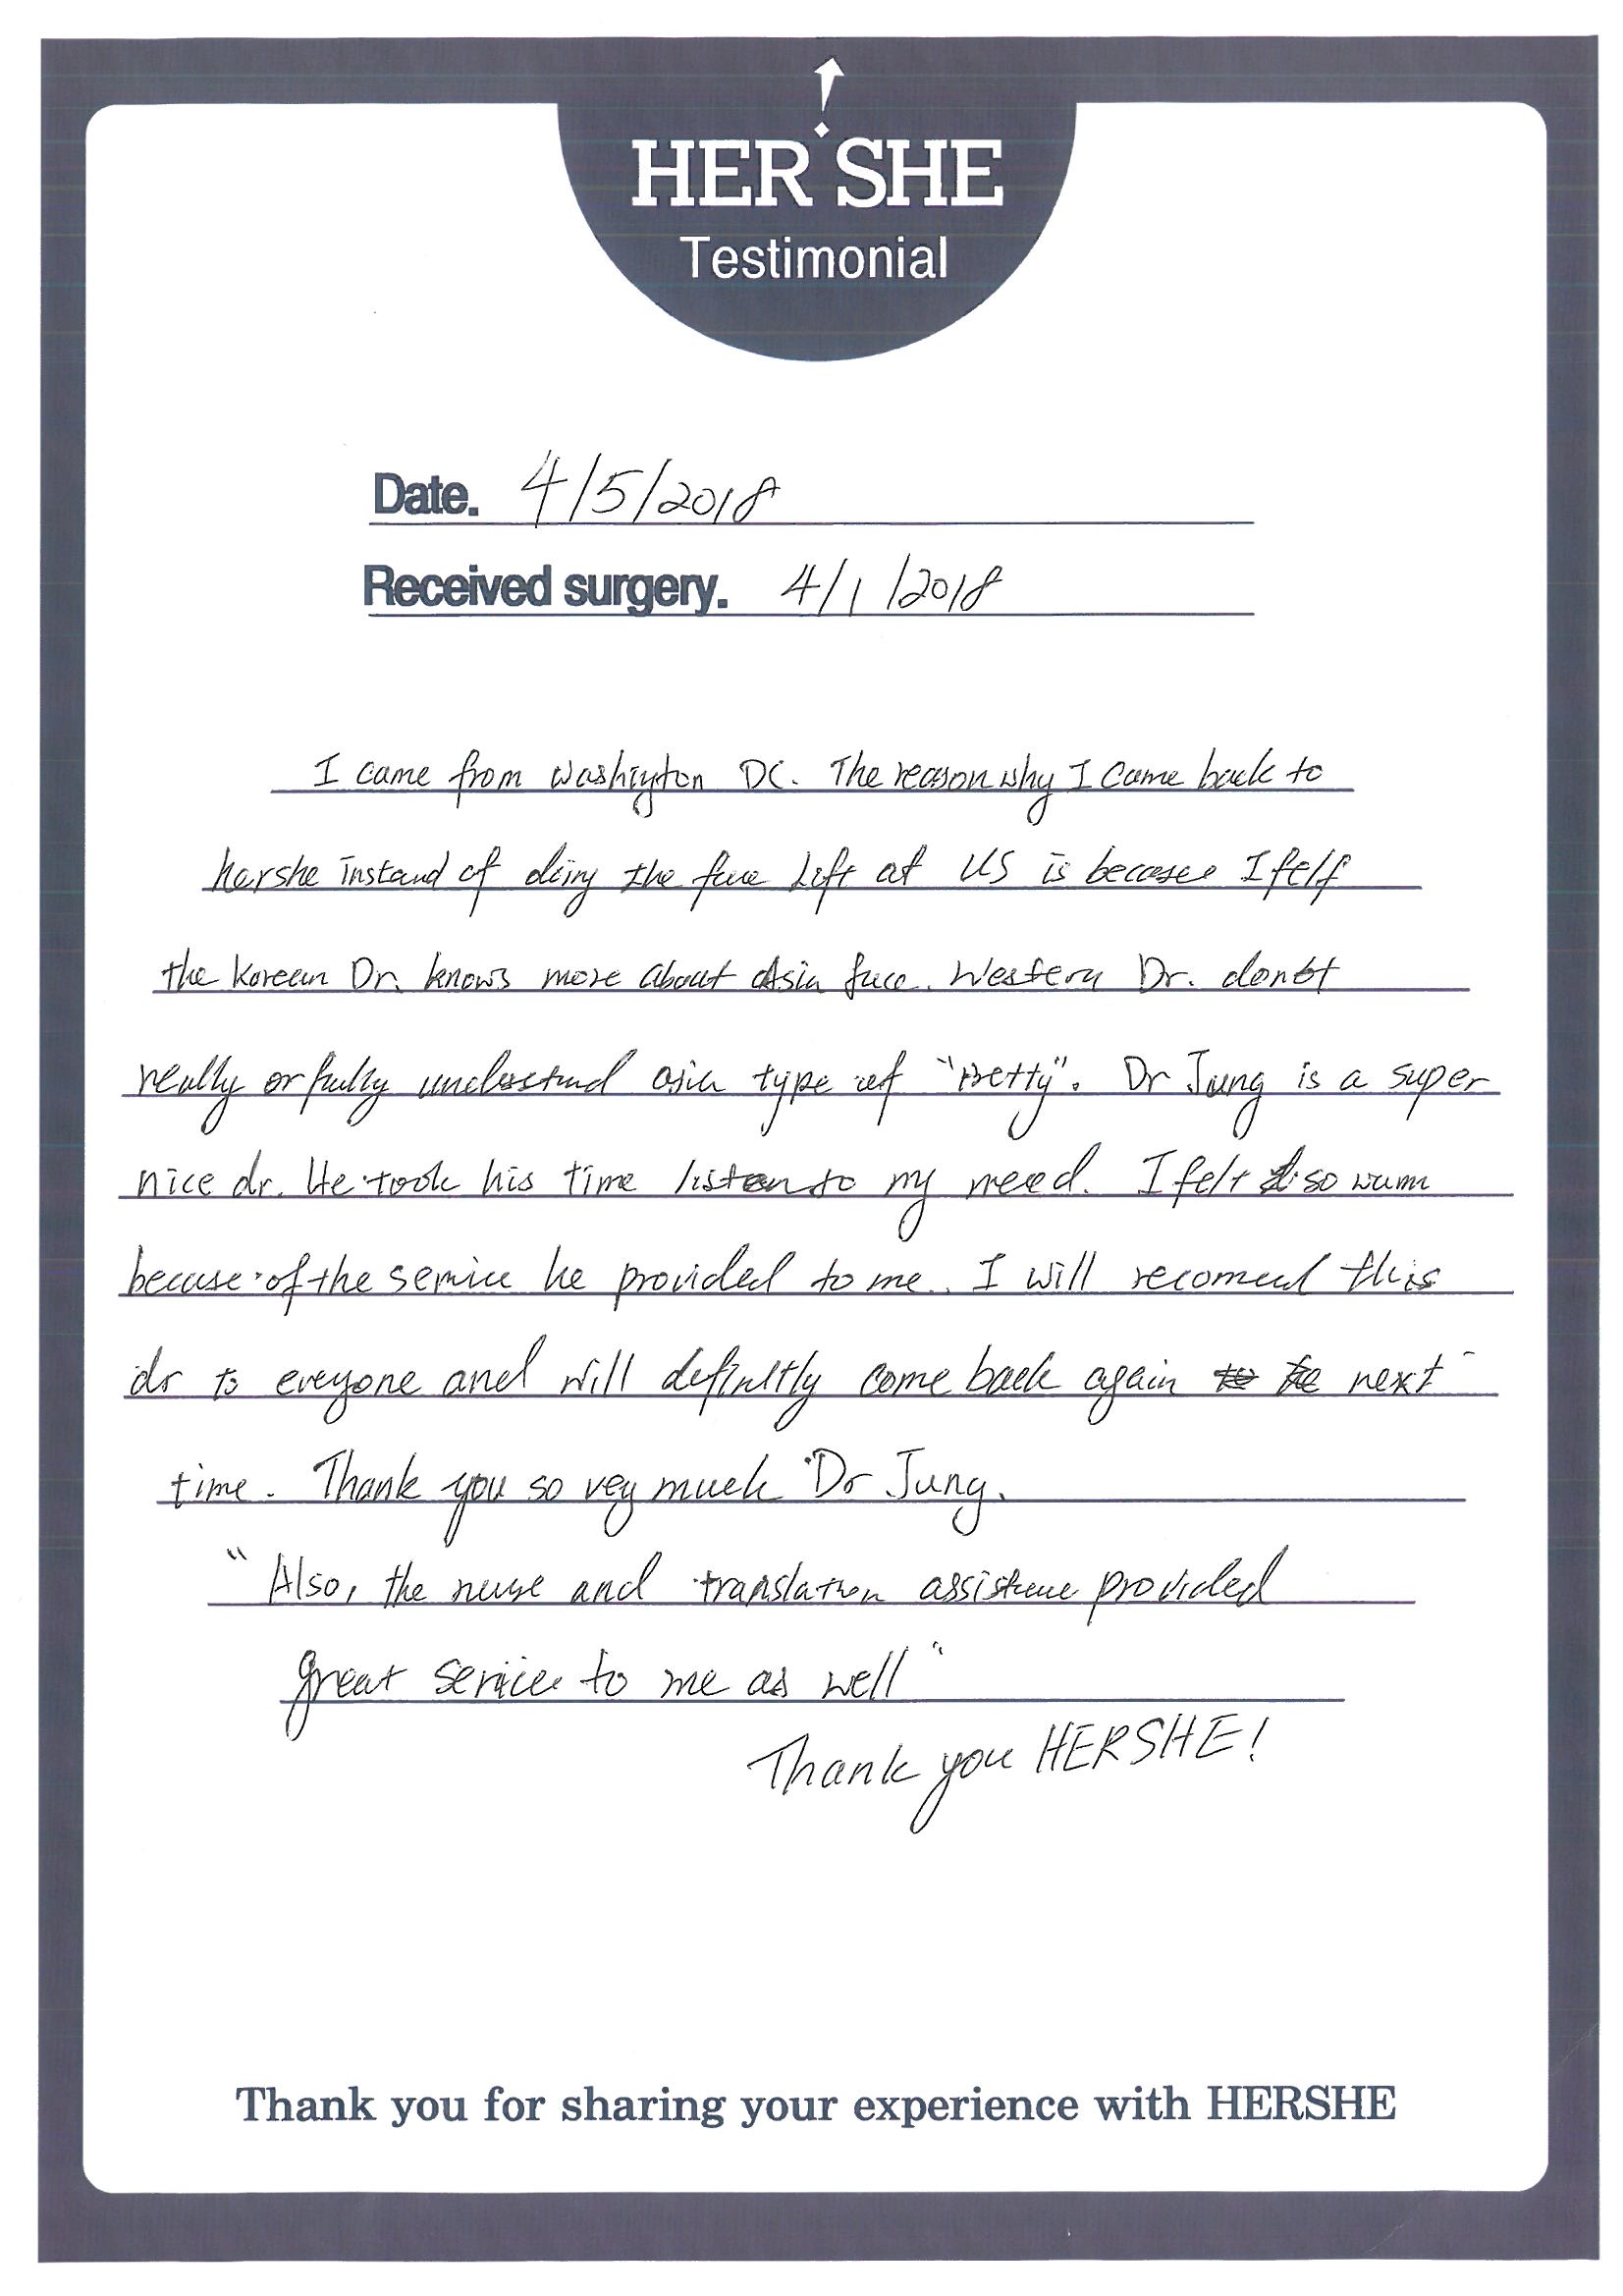 HER SHE
Testimonial
Date. 4/5/2018
Received surgery. 4/1/2018
I came from Washington DC. The reason why I come back to
hershe instand of doing the face lift at US is becasee I felf
the korean Dr. knows more about Asia face. Western Dr. donot
really or fully understand asia type of "Pretty". Dr Jung is a super
nice dr. He took his time listen to my need. I felt so warm
becuse of the service he provided to me. I will recomend this
dr to eveyone and will definitly come back again next
time. Thank you so vey much Dr Jung.
"Also, the nurse and translation assistance provided
great service to me as well"
Thank you HERSHE!
Thank you for sharing your experience with HERSHE